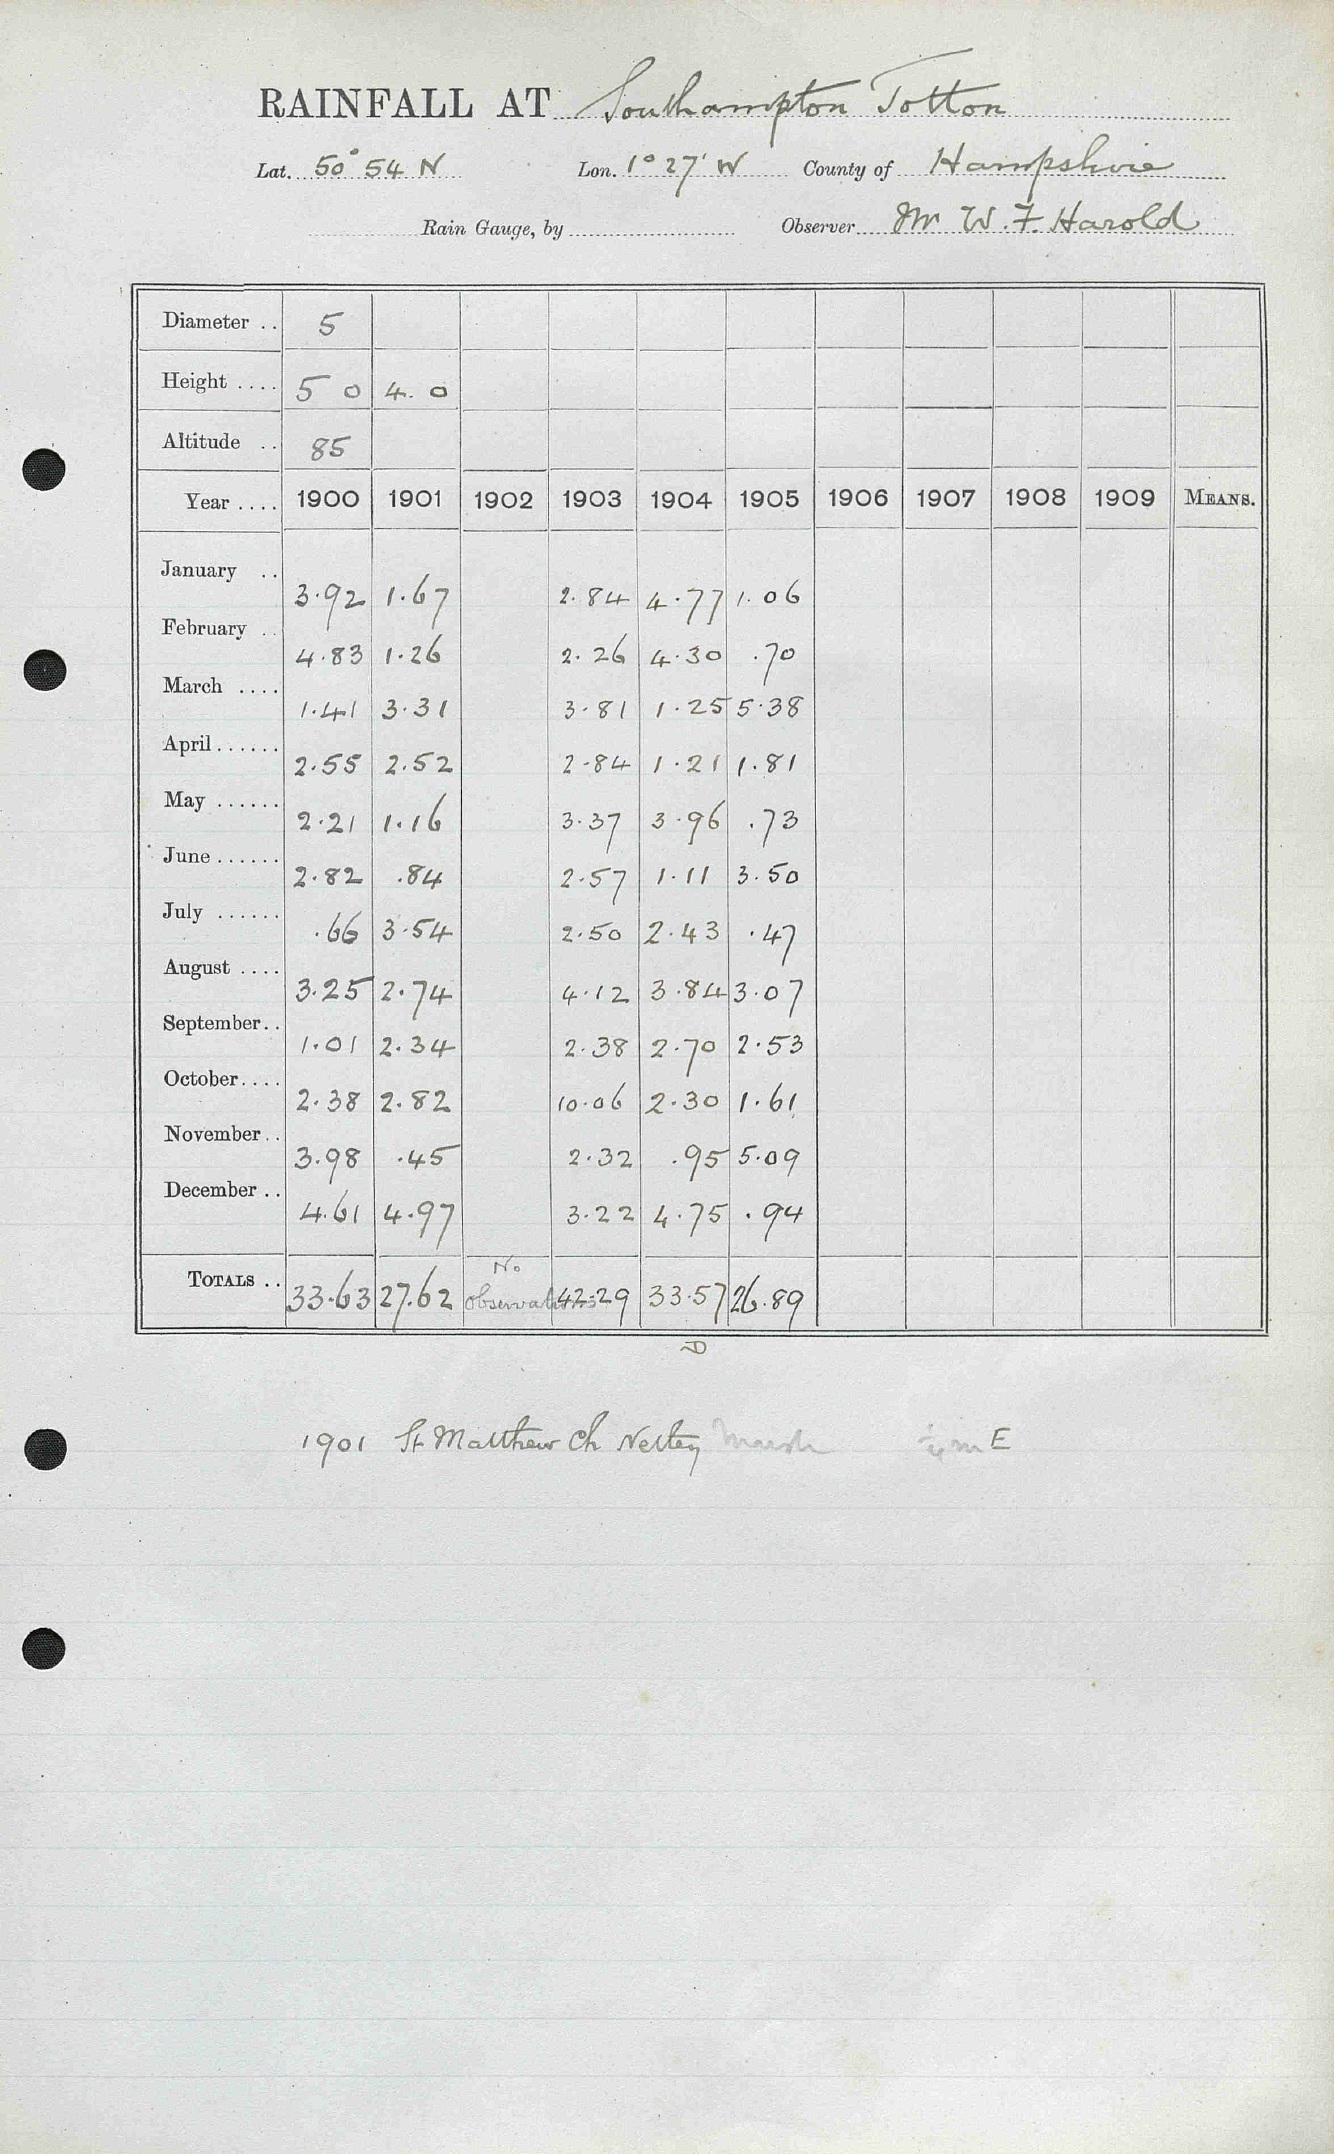 RAINFALL AT Southampton Totton
Lat. 50° 54 N Lon. 1° 27' W County of Hampshire
Rain Gauge, by Observer Mr W. F. Harold
Diameter .. 5
Height .... 5 0 4. 0
Altitude .. 85
Year .... 1900 1901 1902 1903 1904 1905 1906 1907 1908 1909 MEANS.
January .. 3.92 1.67 2.84 4.77 1.06
February .. 4.83 1.26 2.26 4.30 .70
March .... 1.41 3.31 3.81 1.25 5.38
April...... 2.55 2.52 2.84 1.21 1.81
May ...... 2.21 1.16 3.37 3.96 .73
June...... 2.82 .84 2.57 1.11 3.50
July ...... .66 3.54 2.50 2.43 .47
August .... 3.25 2.74 4.12 3.84 3.07
September.. 1.01 2.34 2.38 2.70 2.53
October.... 2.38 2.82 10.06 2.30 1.61
November.. 3.98 .45 2.32 .95 5.09
December .. 4.61 4.97 3.22 4.75 .94
TOTALS .. 33.63 27.62 No observations 42.29 33.57 26.89
D
1901 St Matthew Ch Netley Marsh ¼ m E